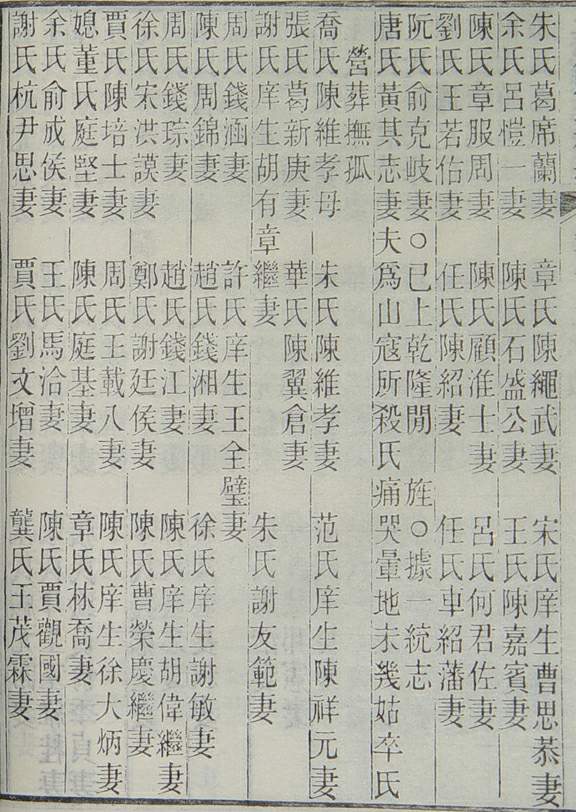 朱氏葛席蘭妻　章氏陳繩武妻　宋氏庠生曹思恭妻
余氏呂愷一妻　陳氏石盛公妻　王氏陳嘉賓妻
陳氏章服周妻　陳氏顧淮士妻　呂氏何君佐妻
劉氏王若佑妻　任氏陳紹妻　任氏車紹藩妻
阮氏俞克岐妻○已上乾隆閒　旌○據一統志
唐氏黃其志妻夫爲山寇所殺氏痛哭暈地未幾姑卒氏
營葬撫孤
喬氏陳維孝母　朱氏陳維孝妻　范氏庠生陳祥元妻
張氏葛新庚妻　華氏陳翼倉妻
謝氏庠生胡有章繼妻　朱氏謝友範妻
周氏錢涵妻　許氏庠生王全璧妻
陳氏周錦妻　趙氏錢湘妻　徐氏庠生謝敏妻
周氏錢琮妻　趙氏錢江妻　陳氏庠生胡偉繼妻
徐氏宋洪謨妻　鄭氏謝廷侯妻　陳氏曹榮慶繼妻
賈氏陳培士妻　周氏王載八妻　陳氏庠生徐大炳妻
媳董氏庭堅妻　陳氏庭基妻　章氏林喬妻
余氏俞成侯妻　王氏馬洽妻　陳氏賈觀國妻
謝氏杭尹思妻　賈氏劉文增妻　龔氏王茂霖妻